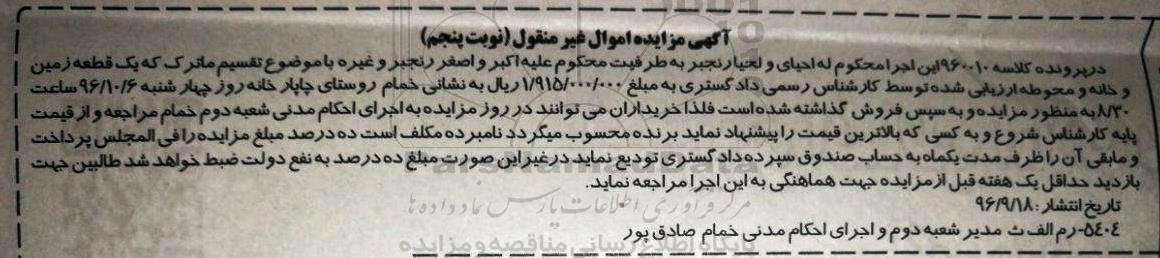 آگهی مزایده اموال غیر منقول (نوبت پنجم)
درپرونده کلاسه ۹۶۰۰۱۰این اجرا محکوم له احیای و لحیارنجبر به طرفیت محکوم علیه اکبر و اصغر رنجبر و غیره با موضوع تقسیم ماترک که یک قطعه زمین
و خانه و محوطه ارزیابی شده توسط کارشناس رسمی دادگستری به مبلغ ۱/۹۱۵/۰۰۰/۰۰۰ ریال به نشانی خمام روستای چاپار خانه روز چهار شنبه ۹۶/۱۰/۶ ساعت
۸/۳۰ به منظور مزایده و به سپس فروش گذاشته شده است فلذا خریداران می توانند در روز مزایده به اجرای احکام مدنی شعبه دوم خمام مراجعه و از قیمت
پایه کارشناس شروع و به کسی که بالاترین قیمت را پیشنهاد نماید برنده محسوب میگردد نامبرده مکلف است ده درصد مبلغ مزایده را فی المجلس پرداخت
و مابقی آن را ظرف مدت یکماه به حساب صندوق سپرده دادگستری تودیع نماید درغیر این صورت مبلغ ده درصد به نفع دولت ضبط خواهد شد طالبین جهت
بازدید حداقل یک هفته قبل از مزایده جهت هماهنگی به این اجرا مراجعه نماید.
تاریخ انتشار: ۹۶/۹/۱۸
۵٤۰٤-رم الف ث مدیر شعبه دوم و اجرای احکام مدنی خمام صادق پور
مرکز فرآوری اطلاعات پارس نماد داده ها
پایگاه اطلاع رسانی مناقصه و مزایده